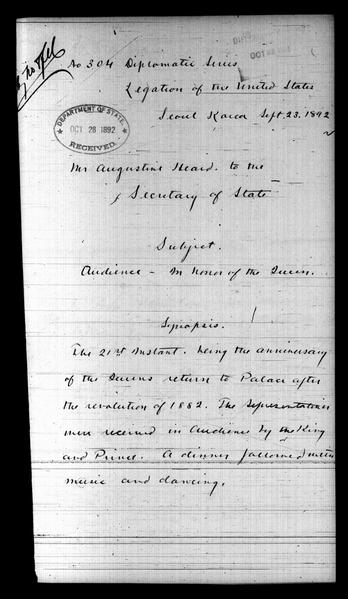 No 304 Diplomatic Series
Legation of the United States
Seoul Korea Sept. 23. 1892
DEPARTMENT OF STATE.
OCT 28 1892
RECEIVED.
Mr Augustine Heard. to the
Secretary of State
Subject.
Audience - In honor of the Queen.
Synopsis.
The 21st Instant. being the anniversary
of the Queens return to Palace after
the revolution of 1882. The Representatives
were received in Audience by the King
and Prince. A dinner followed with
music and dancing.